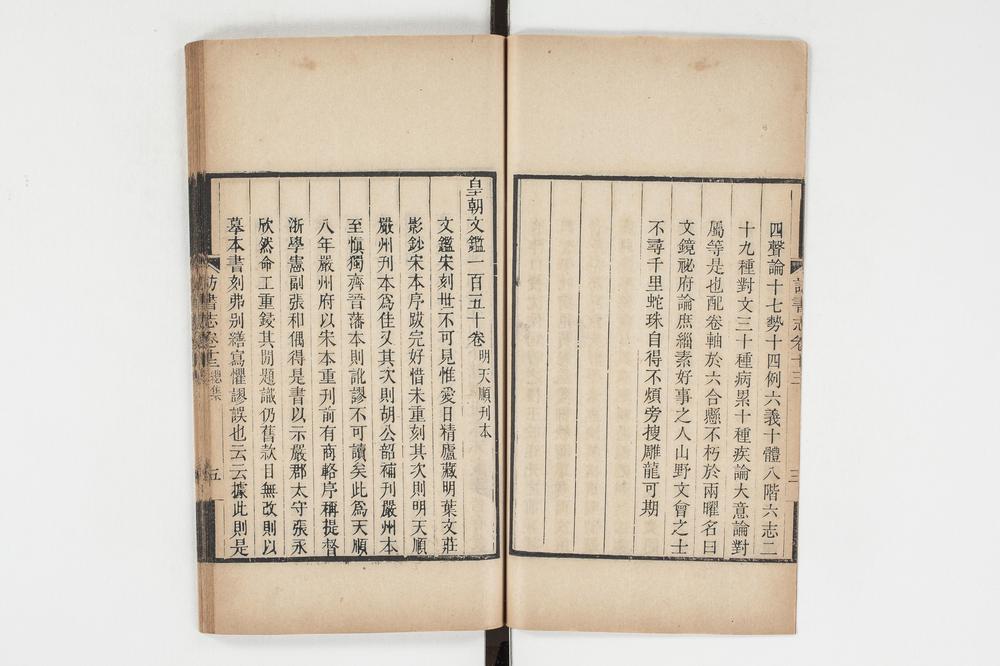 四聲論十七勢十四例六義十體八階六志二
十九種對文三十種病累十種疾論大意論對
屬等是也配卷軸於六合懸不朽於兩曜名曰
文鏡祕府論庶緇素好事之人山野文會之士
不尋千里蛇珠自得不煩旁搜雕龍可期
訪書志卷十三
三
皇朝文鑑一百五十卷明天順刊本
文鑑宋刻世不可見惟愛日精廬藏明葉文莊
影鈔宋本序跋完好惜未重刻其次則明天順
嚴州刊本爲佳又其次則胡公韶補刊嚴州本
至愼獨齊晉藩本則訛謬不可讀矣此爲天順
八年嚴州府以宋本重刊前有商輅序稱提督
浙學憲副張和偶得是書以示嚴郡太守張永
欣然命工重鋟其閒題識仍舊款目無改則以
墓本書刻弗别繕寫懼謬誤也云云據此則是
訪書志卷十三總集
五